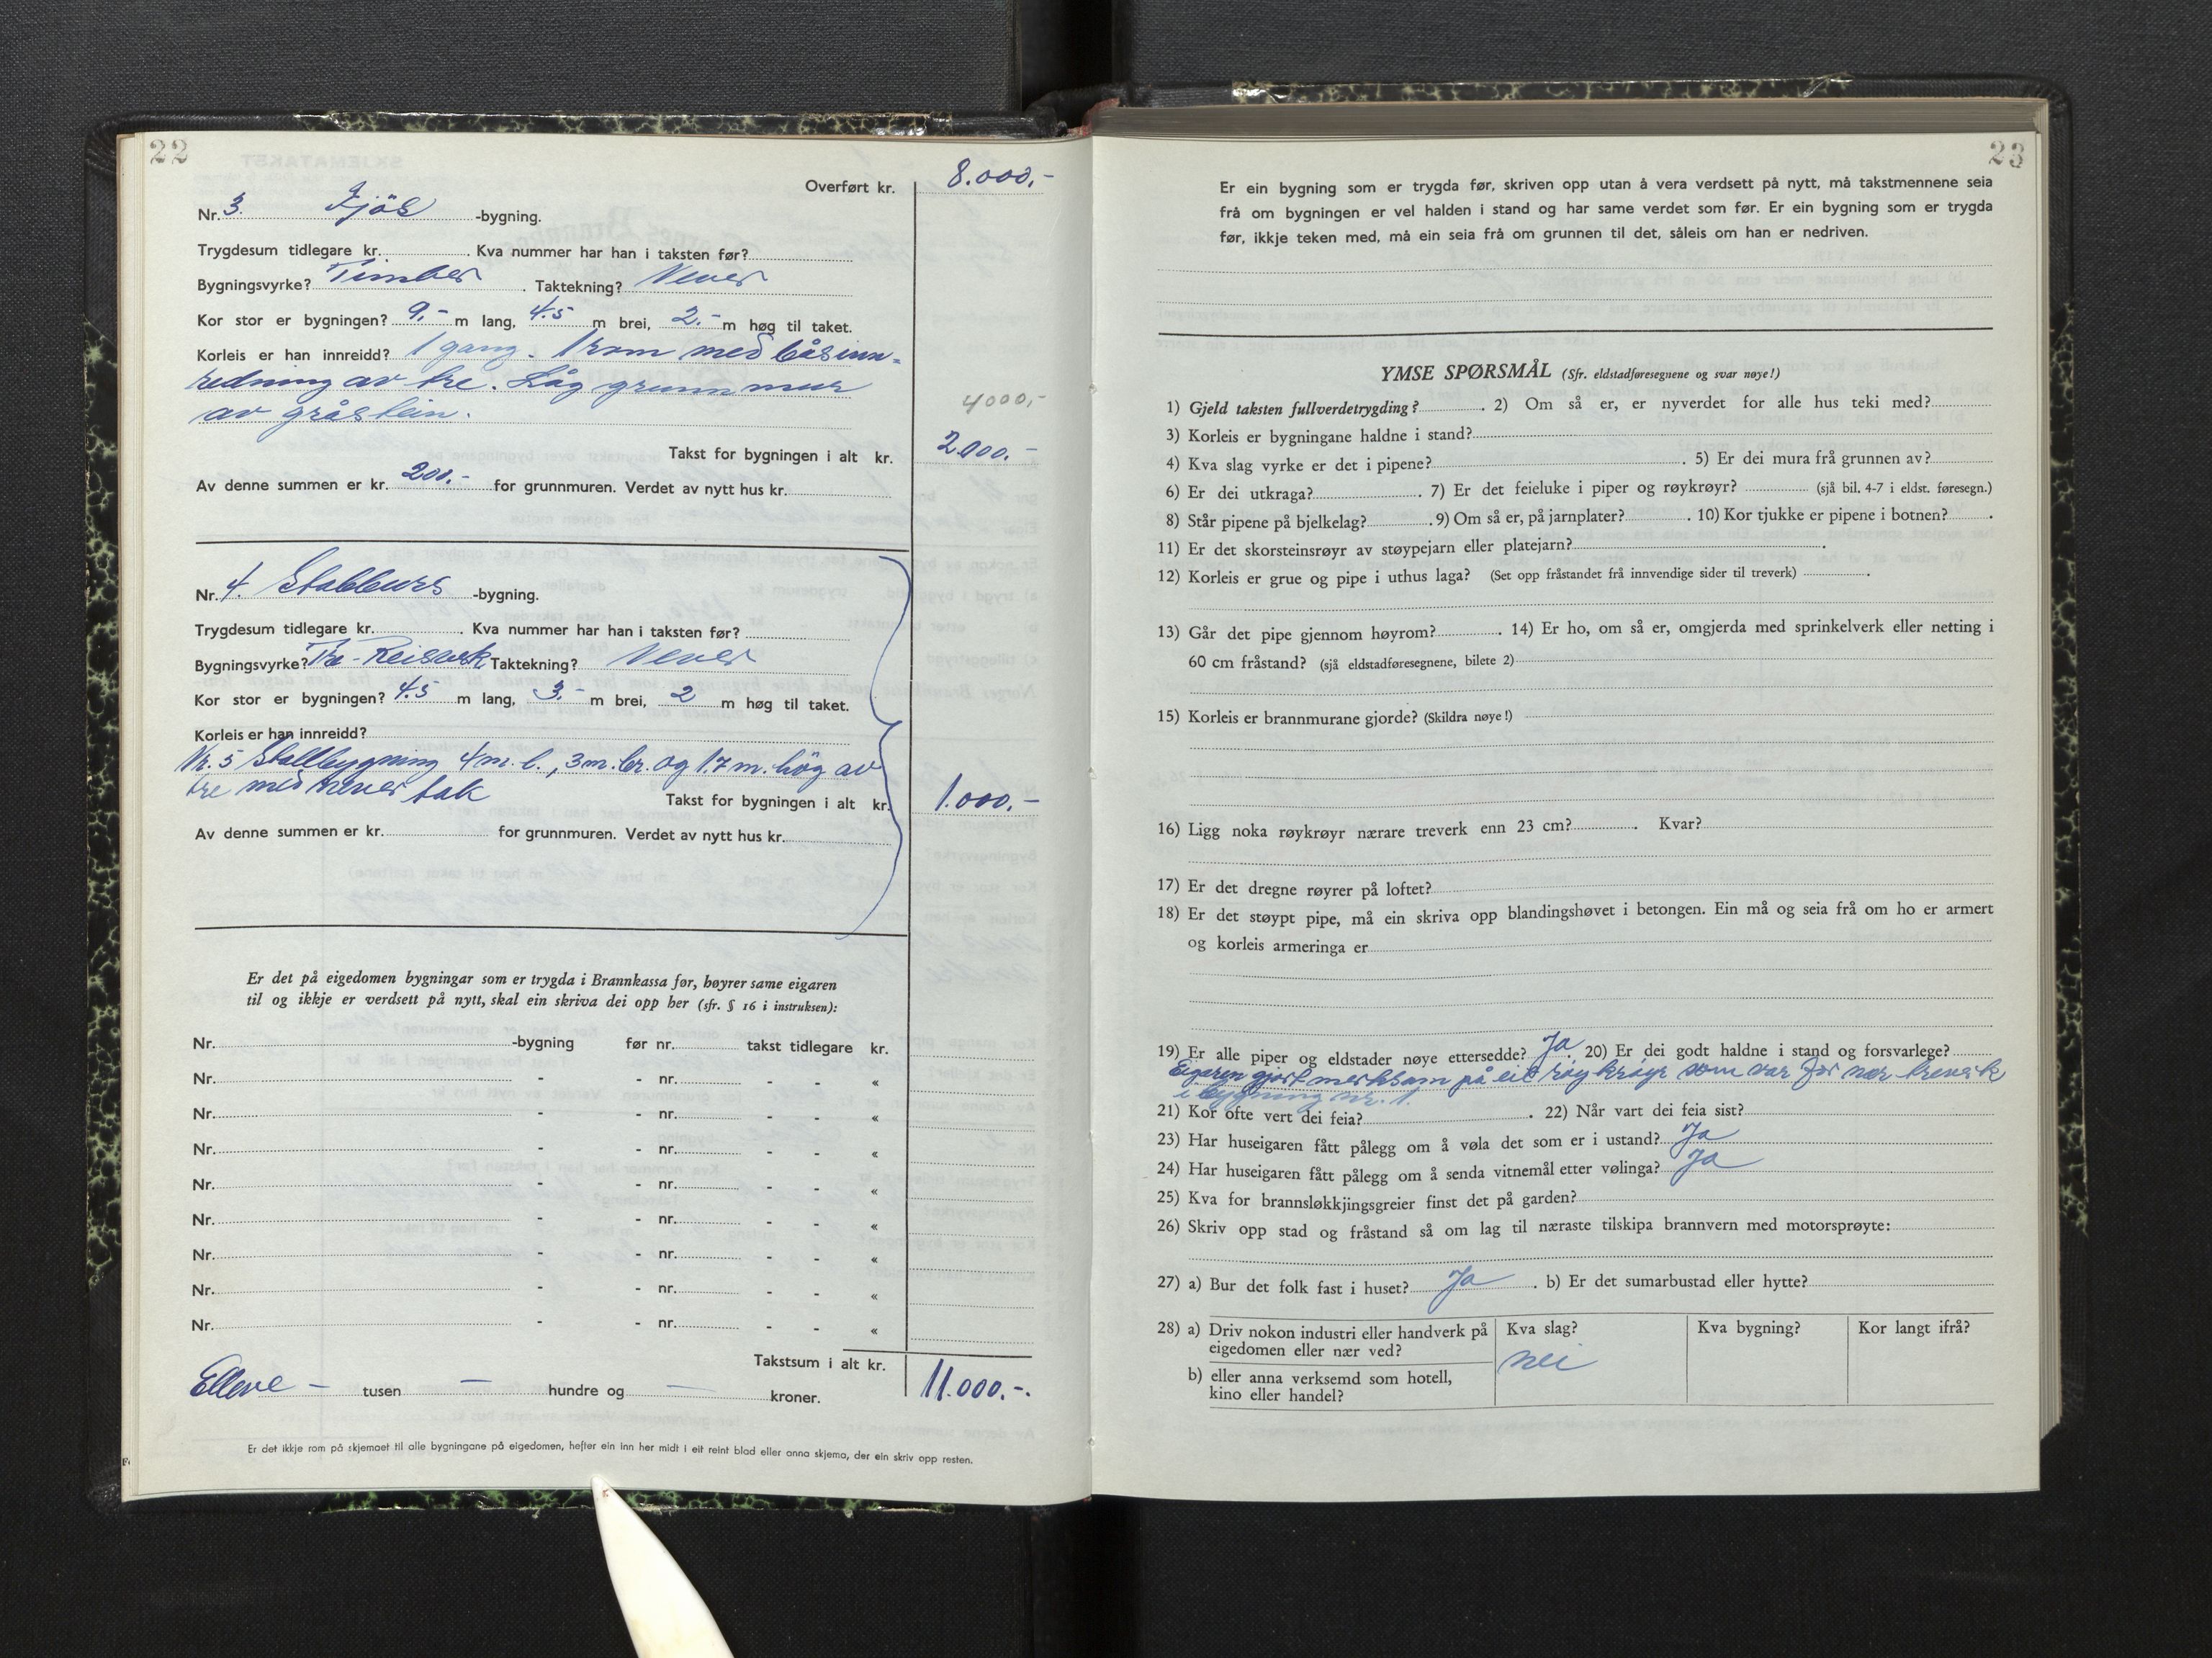 22
Overført kr. 8.000,-
Nr. 3. Fjös -bygning.
Trygdesum tidlegare kr. . Kva nummer har han i taksten før?
Bygningsvyrke? Timber . Taktekning? Never
Kor stor er bygningen? 9,- m lang, 4.5 m brei, 2.- m høg til taket.
Korleis er han innreidd? 1 gang. 1 rom med båsinn=
redning av tre. Låg grunnmur
av gråstein.
4000,-
Takst for bygningen i alt kr. 2000.-
Av denne summen er kr. 200.- for grunnmuren. Verdet av nytt hus kr.
Nr. 4. Stabburs -bygning.
Trygdesum tidlegare kr. . Kva nummer har han i taksten før?
Bygningsvyrke? Tre-Reisverk Taktekning? Never
Kor stor er bygningen? 4.5 m lang, 3.- m brei, 2 m høg til taket.
Korleis er han innreidd?
Nr. 5 Stallbygning 4 m. l., 3 m. br. og 1.7 m. hög av
tre med never tak
Takst for bygningen i alt kr. 1.000,-
Av denne summen er kr. for grunnmuren. Verdet av nytt hus kr.
Er det på eigedomen bygningar som er trygda i Brannkassa før, høyrer same eigaren
til og ikkje er verdsett på nytt, skal ein skriva dei opp her (sfr. § 16 i instruksen):
Nr. -bygning før nr. takst tidlegare kr.
Nr. - - nr. - - «
Nr. - - nr. - - «
Nr. - - nr. - - «
Nr. - - nr. - - «
Nr. - - nr. - - «
Nr. - - nr. - - «
Nr. - - nr. - - «
Nr. - - nr. - - «
Takstsum i alt kr. 11.000.-.
Elleve - tusen — hundre og — kroner.
Er det ikkje rom på skjemaet til alle bygningane på eigedomen, hefter ein inn her midt i eit reint blad eller anna skjema, der ein skriv opp resten.
23
Er ein bygning som er trygda før, skriven opp utan å vera verdsett på nytt, må takstmennene seia
frå om bygningen er vel halden i stand og har same verdet som før. Er ein bygning som er trygda
før, ikkje teken med, må ein seia frå om grunnen til det, såleis om han er nedriven.
YMSE SPØRSMÅL (Sfr. eldstadføresegnene og svar nøye!)
1) Gjeld taksten fullverdetrygding? . 2) Om så er, er nyverdet for alle hus teki med?
3) Korleis er bygningane haldne i stand?
4) Kva slag vyrke er det i pipene? . 5) Er dei mura frå grunnen av?
6) Er dei utkraga? . 7) Er det feieluke i piper og røykrøyr? (sjå bil. 4-7 i eldst. føresegn.)
8) Står pipene på bjelkelag? . 9) Om så er, på jarnplater? . 10) Kor tjukke er pipene i botnen? .
11) Er det skorsteinsrøyr av støypejarn eller platejarn? .
12) Korleis er grue og pipe i uthus laga? (Set opp fråstandet frå innvendige sider til treverk) .
13) Går det pipe gjennom høyrom? . 14) Er ho, om så er, omgjerda med sprinkelverk eller netting i
60 cm fråstand? (sjå eldstadføresegnene, bilete 2)
15) Korleis er brannmurane gjorde? (Skildra nøye!)
16) Ligg noka røykrøyr nærare treverk enn 23 cm? . Kvar?
17) Er det dregne røyrer på loftet?
18) Er det støypt pipe, må ein skriva opp blandingshøvet i betongen. Ein må og seia frå om ho er armert
og korleis armeringa er
19) Er alle piper og eldstader nøye ettersedde? Ja . 20) Er dei godt haldne i stand og forsvarlege?
Eigaren gjort merksam på eit røykrøyr som var for nær treverk
i bygning nr. 1.
21) Kor ofte vert dei feia? . 22) Når vart dei feia sist?
23) Har huseigaren fått pålegg om å vøla det som er i ustand? Ja
24) Har huseigaren fått pålegg om å senda vitnemål etter vølinga? Ja
25) Kva for brannsløkkjingsgreier finst det på garden?
26) Skriv opp stad og fråstand så om lag til næraste tilskipa brannvern med motorsprøyte:
27) a) Bur det folk fast i huset? Ja . b) Er det sumarbustad eller hytte?
28) a) Driv nokon industri eller handverk på Kva slag? Kva bygning? Kor langt ifrå?
eigedomen eller nær ved? nei
b) eller anna verksemd som hotell,
kino eller handel?